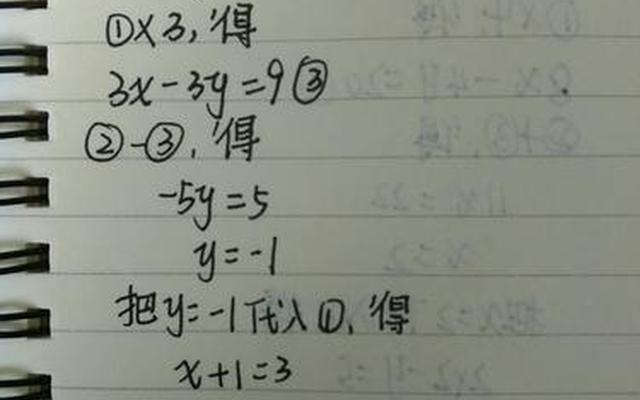 ①×3,得
3x-3y=9③
②-③,得
-5y=5
y=-1
把y=-1代入①,得
x+1=3